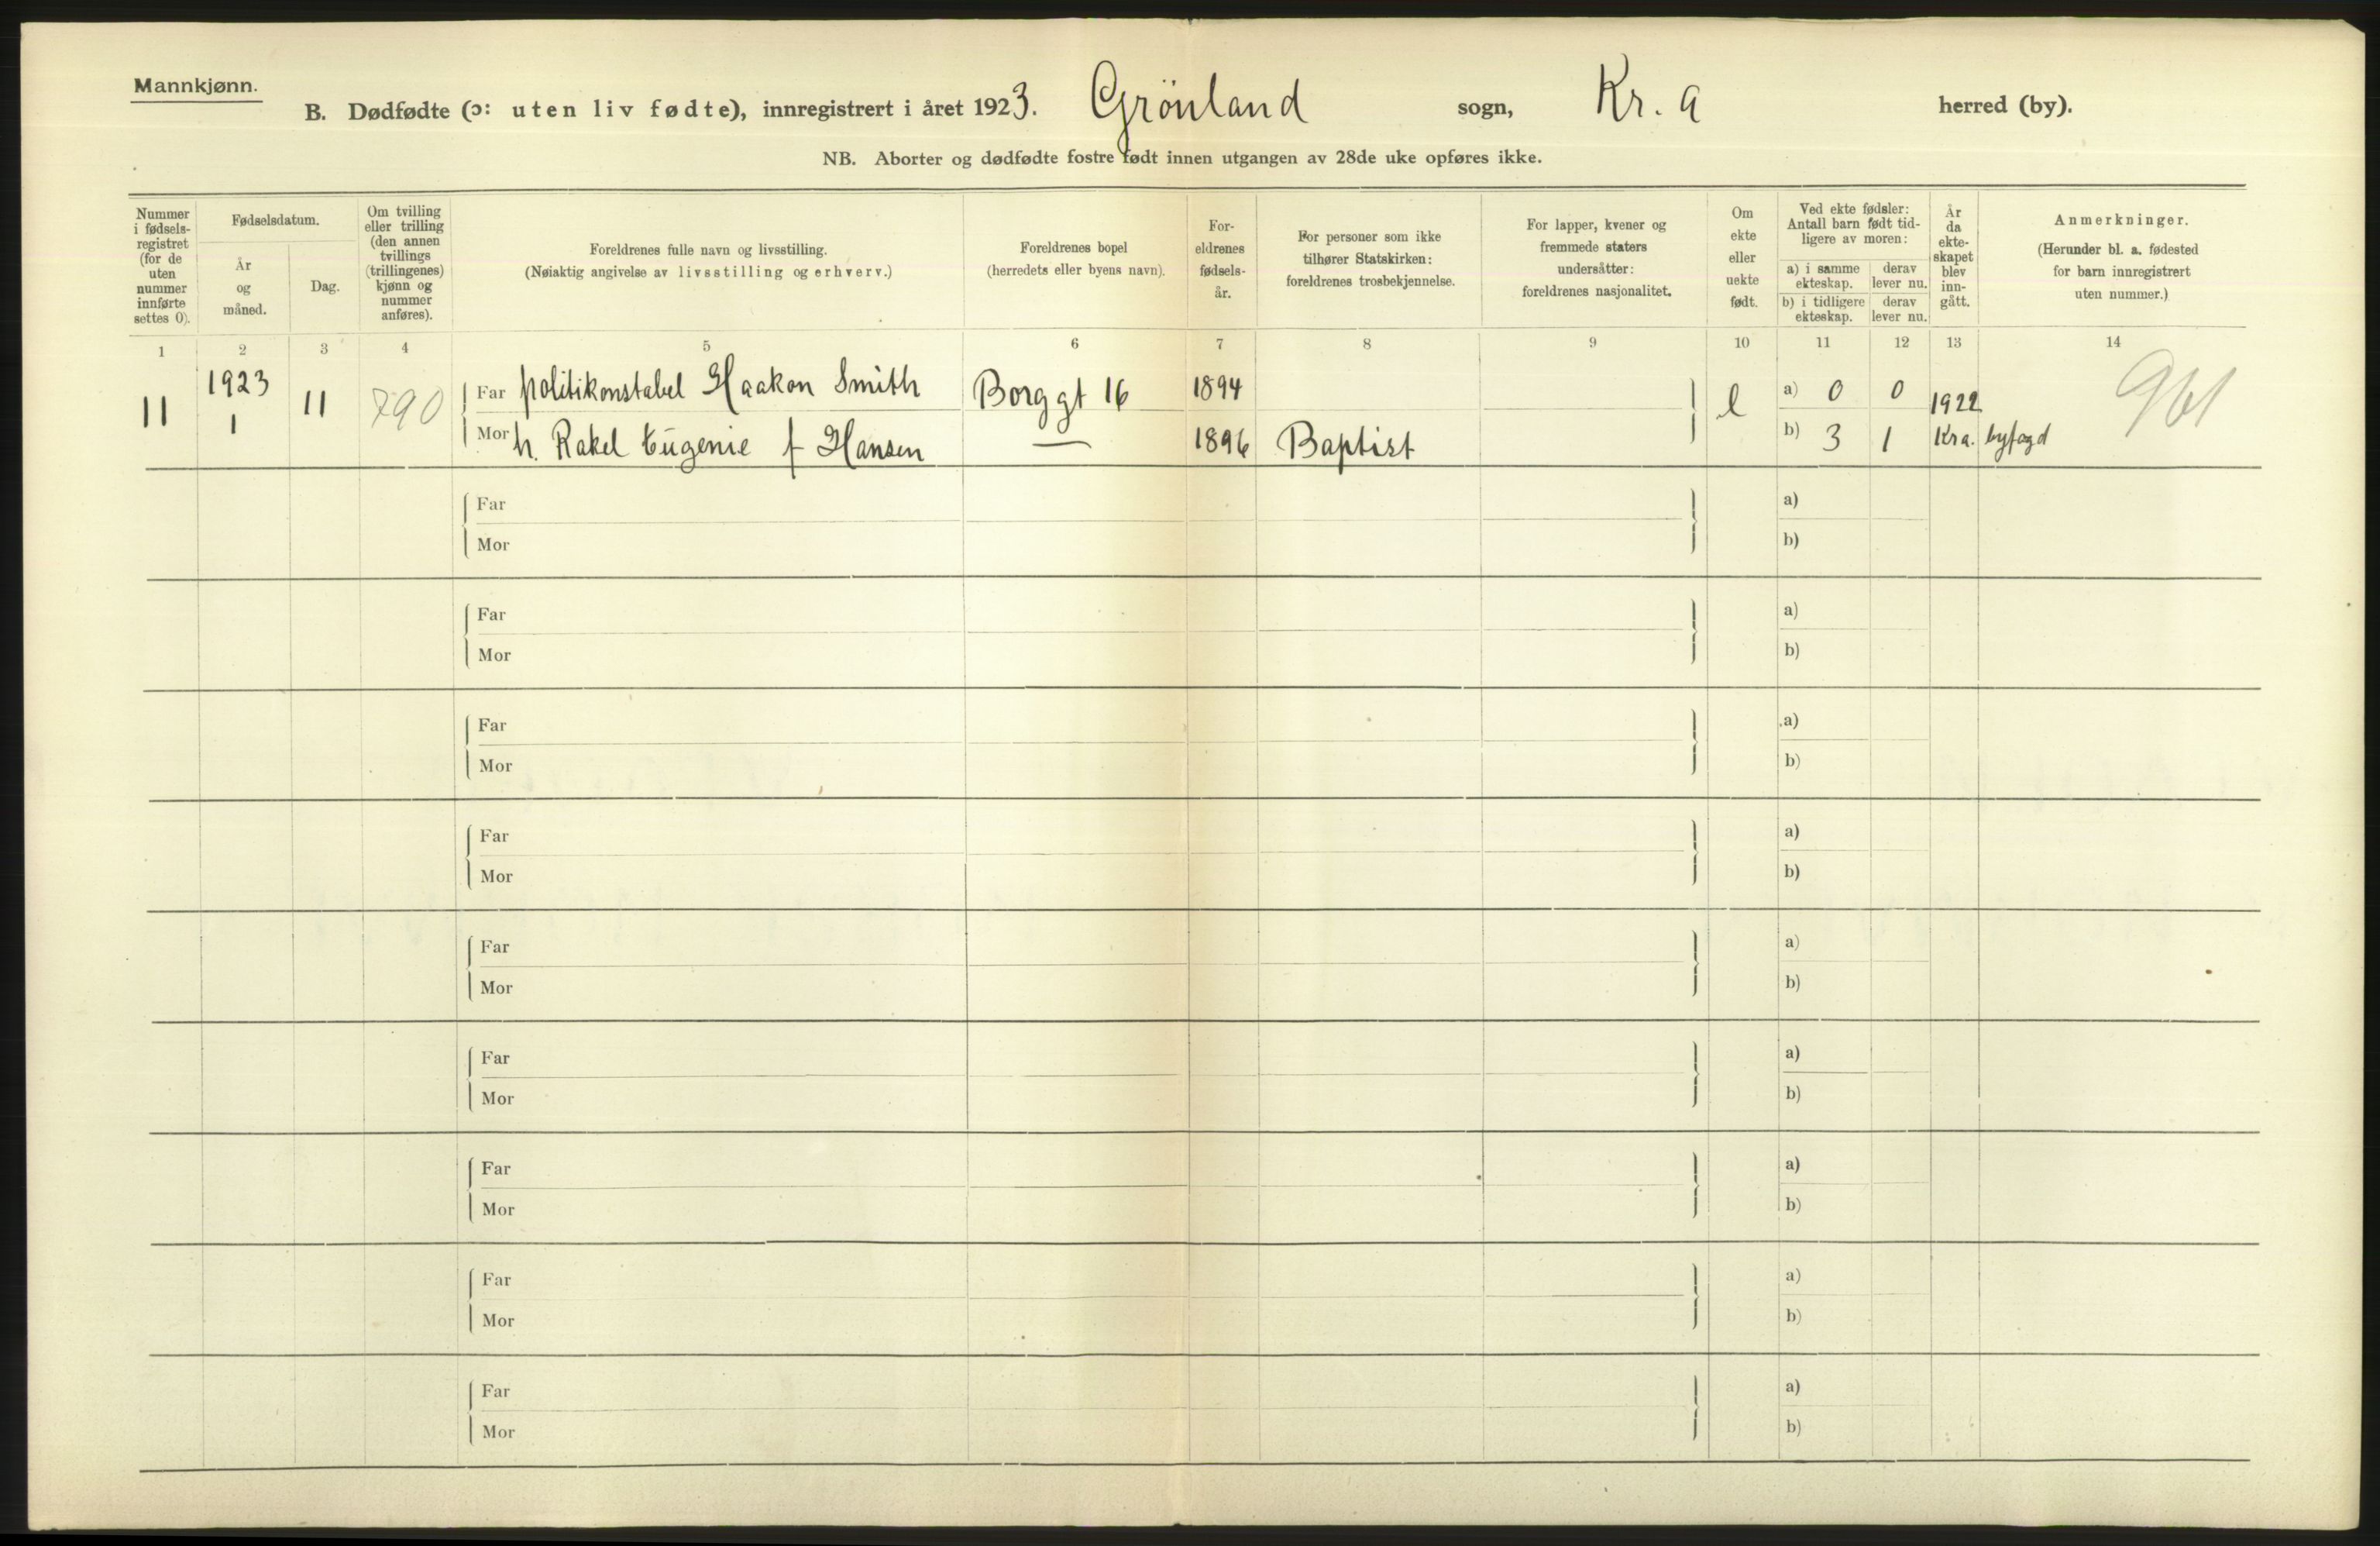 Mannkjønn.
B. Dødfødte (ɔ: uten liv fødte), innregistrert i året 1923. Grönland sogn, Kr. a herred (by).
NB. Aborter og dødfødte fostre født innen utgangen av 28de uke opføres ikke.
Nummer
i fødsels-
registret
(for de
uten
nummer
innførte
settes 0).
Fødselsdatum.
År
og
måned.
Dag.
Om tvilling
eller trilling
(den annen
tvillings
(trillingenes)
kjønn og
nummer
anføres).
Foreldrenes fulle navn og livsstilling.
(Nøiaktig angivelse av livsstilling og erhverv.)
Foreldrenes bopel
(herredets eller byens navn).
For-
eldrenes
fødsels-
år.
For personer som ikke
tilhører Statskirken:
foreldrenes trosbekjennelse.
For lapper, kvener og
fremmede staters
undersåtter:
foreldrenes nasjonalitet.
Om
ekte
eller
uekte
født.
Ved ekte fødsler:
Antall barn født tid-
ligere av moren:
a) i samme
ekteskap.
derav
lever nu.
b) i tidligere
ekteskap.
derav
lever nu.
År
da
ekte-
skapet
blev
inn-
gått.
Anmerkninger.
(Herunder bl. a. fødested
for barn innregistrert
uten nummer.)
1 2 3 4 5 6 7 8 9 10 11 12 13 14
11 1923 1 11 790
Far politikonstabel Haakon Smith Borggt 16 1894 e a) 0 0 1922 961
Mor h. Rakel Eugenie f Hansen — 1896 Baptist b) 3 1 Kra. byfogd
Far a)
Mor b)
Far a)
Mor b)
Far a)
Mor b)
Far a)
Mor b)
Far a)
Mor b)
Far a)
Mor b)
Far a)
Mor b)
Far a)
Mor b)
Far a)
Mor b)